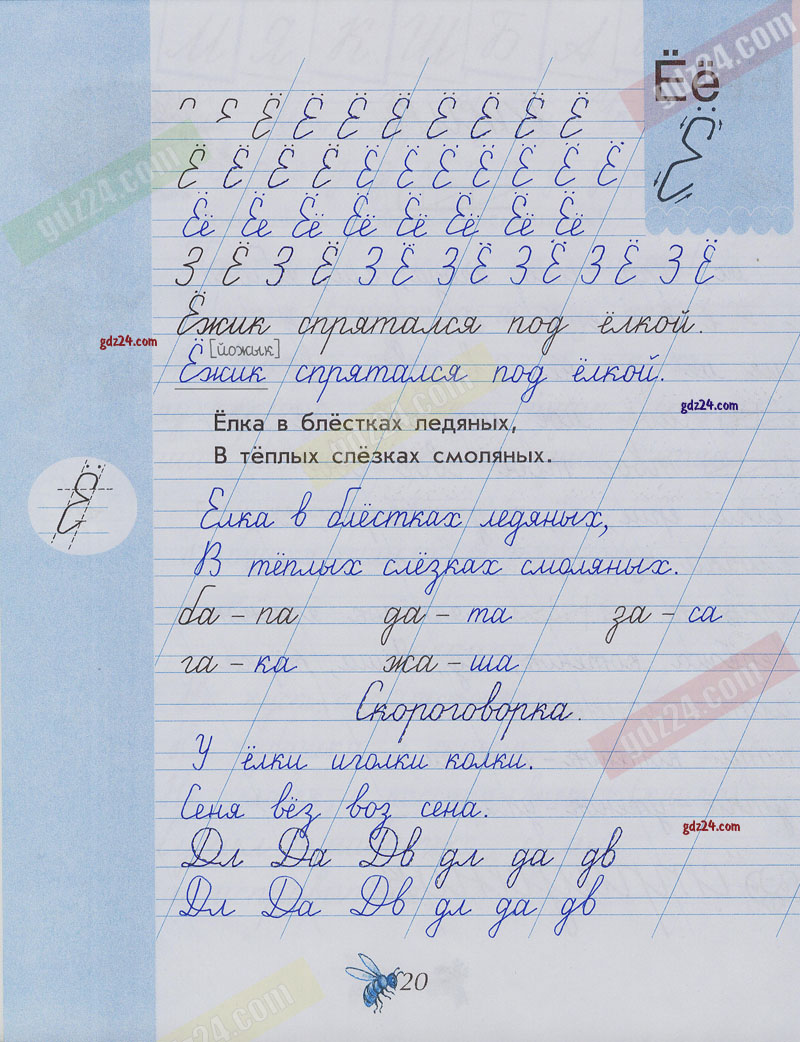 Ёё
Ё Ё Ё Ё Ё Ё Ё Ё
Ё
Ё Ё Ё Ё Ё Ё Ё Ё Ё Ё Ё
Ёё Ёё Ёё Ёё Ёё Ёё Ёё Ёё
З Ё З Ё З Ё З Ё З Ё З Ё З Ё
Ёжик спрятался под ёлкой.
gdz24.com
[йожык]
Ёжик спрятался под ёлкой.
gdz24.com
Ёлка в блёстках ледяных,
В тёплых слёзках смоляных.
Ё
Елка в блёстках ледяных,
В тёплых слёзках смоляных.
ба – па да – та за – са
га – ка жа – ша
Скороговорка.
У ёлки иголки колки.
Сеня вёз воз сена.
gdz24.com
Дл Да Дв дл да дв
Дл Да Дв дл да дв
20